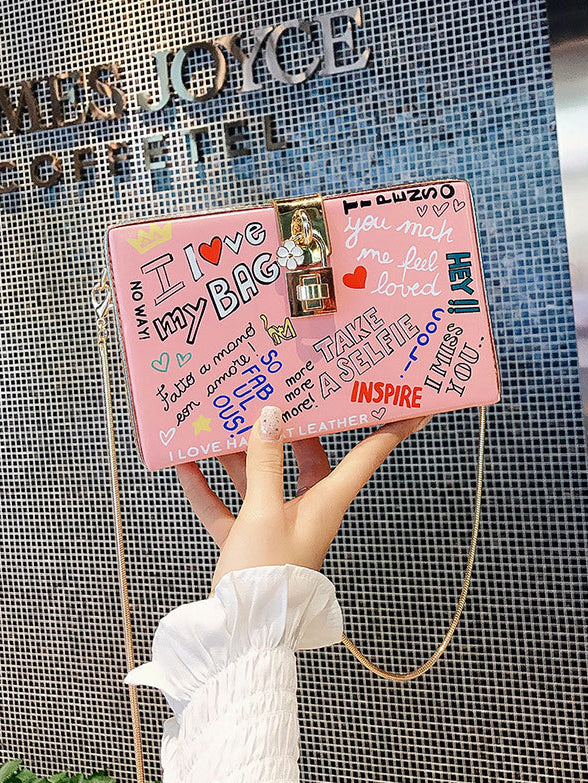 MES JOYCE
COFFETEL
I love
my BAG
NO WAY!
Fatto a mano
con amore!
SO
FAB
UL
OUS!
more
more
more!
TAKE
A SELFIE
TI PENSO
you mak
me feel
loved
HEY!!
COOL
I MISS
YOU..
INSPIRE
I LOVE HA T LEATHER